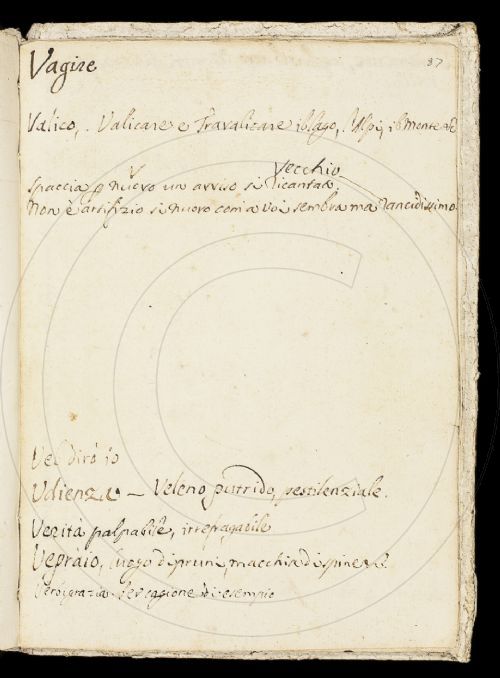 87
Vagire
Valico, . Valicare e Travalicare il lago, l'Alpi, il Monte &c
Vecchio
Spaccia p nuovo un avviso sì ricantato,
Non è artifizio sì nuovo com'a voi sembra ma rancidissimo.
Vel dirò io
Udienza — Veleno putrido, pestilenziale.
Verità palpabile, irrepugabile
Vepraio, luogo di pruni, macchia di spine
Verbigrazia Per cagione di esempio